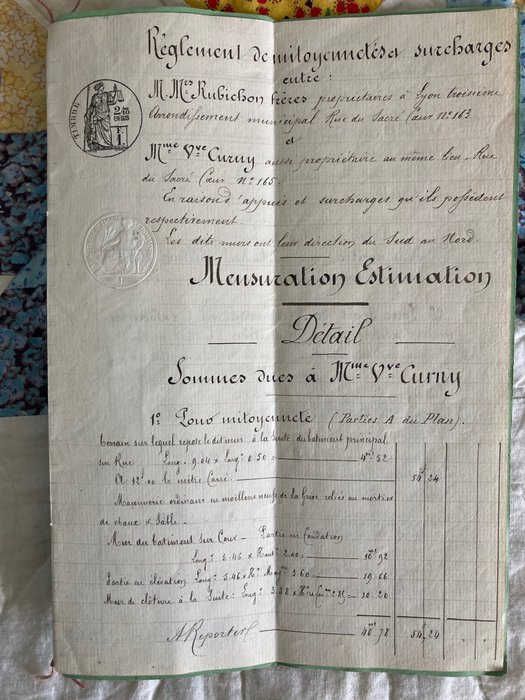 TIMBRE
2/10 EN SUS
1F
Règlement de mitoyennetés et surcharges
entre :
M. Mrs Rubichon Frères propriétaires à Lyon troisième
Arrondissement municipal Rue du Sacré Cœur No 163
et
Mme Vve Curny aussi propriétaire au même lieu, Rue
du Sacré Cœur No 165.
En raison d'appuis et surcharges qu'ils possèdent
respectivement.
Les dits murs ont leur direction du Sud au Nord.
Mensuration Estimation
Détail
Sommes dues à Mme Vve Curny
1o Pour mitoyenneté (Parties A du Plan).
terrain sur lequel repose le dit mur à la suite du batiment principal
sur Rue Longr 9.04 x Largr 0.50 4m2 52
A 12f 00 le mètre Carré 54f 24
Maçonnerie ordinaire en moellons neufs de la reliés au mortier
de chaux & Sable.
Mur du batiment sur Cour – Partie en fondation
Longr 5.46 x Hautr 2.00 10m2 92
Partie en élévation Longr 5.46 x Hr Moynne 3.60 19.66
Mur de clôture à la Suite : Longr 3.58 x 2.85 10.20
A Reporter 40m2 78 54f 24